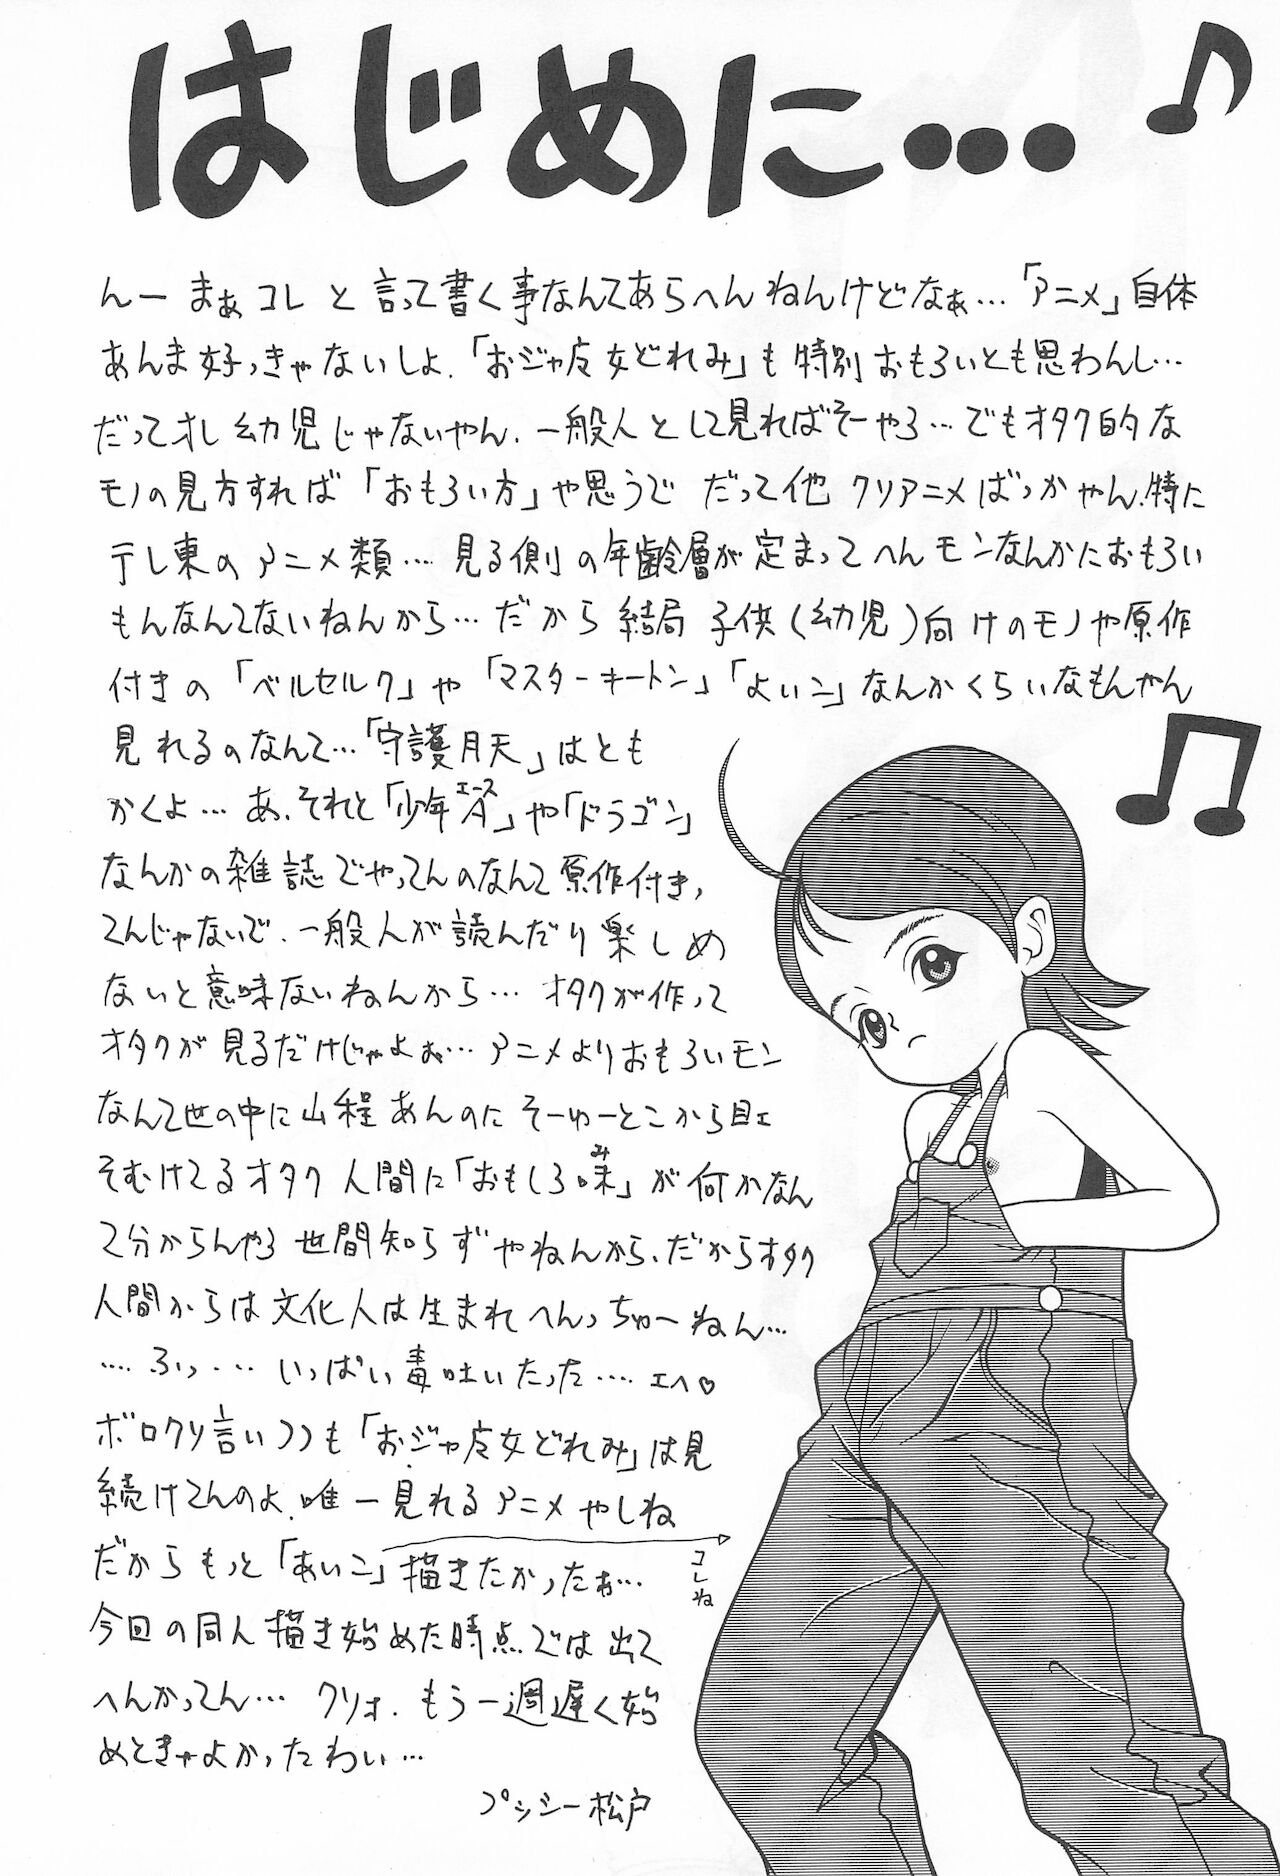 はじめに…
んー まぁコレと言って書く事なんてあらへんねんけどなぁ…「アニメ」自体
あんま好っきゃないしよ.「おジャ魔女どれみ」も特別おもろいとも思わんし…
だってオレ幼児じゃないやん.一般人として見ればそーやろ…でもオタク的な
モノの見方すれば「おもろい方」や思うで だって他クソアニメばっかやん.特に
テレ東のアニメ類…見る側の年齢層が定まってへんモンなんかにおもろい
もんなんてないねんから…だから結局子供(幼児)向けのモノや原作
付きの「ベルセルク」や「マスターキートン」「よいこ」なんかくらいなもんやん
見れるのなんて…「守護月天」はとも
かくよ…あ、それと「少年A」や「ドラゴン」
エース
なんかの雑誌でやってんのなんて原作付き、
てんじゃないで.一般人が読んだり楽しめ
ないと意味ないねんから…オタクが作って
オタクが見るだけじゃよぉ…アニメよりおもろいモン
なんて世の中に山程あんのにそーゆーとこから目ェ
そむけてるオタク人間に「おもしろ味」が何かなん
み
て分からんやろ世間知らずやねんから、だからオタク
人間からは文化人は生まれへんっちゅーねん…
…ふっ…いっぱい毒吐いたった…エヘ♡
ボロクソ言いつつも「おジャ魔女どれみ」は見
続けてんのよ.唯一見れるアニメやしね
だからもっと「あいこ」描きたかったぉ…
コレね
今回の同人描き始めた時点では出て
へんかってん…クソォ.もう一週遅く始
めときゃよかったわい…
プッシー松戸